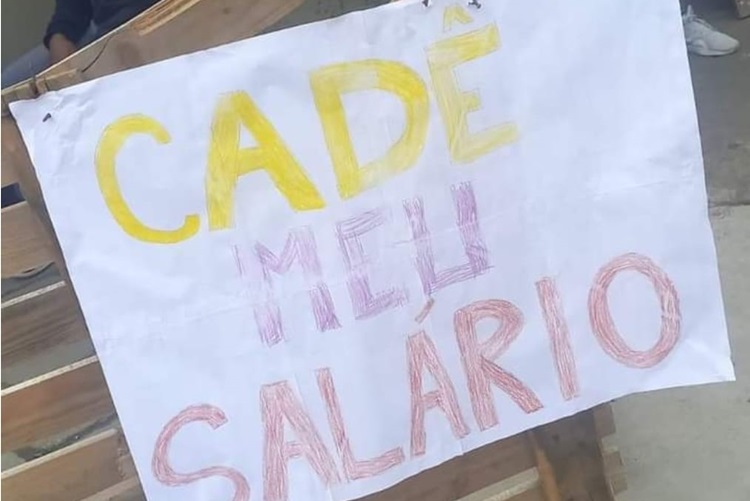 CADÊ
MEU
SALÁRIO